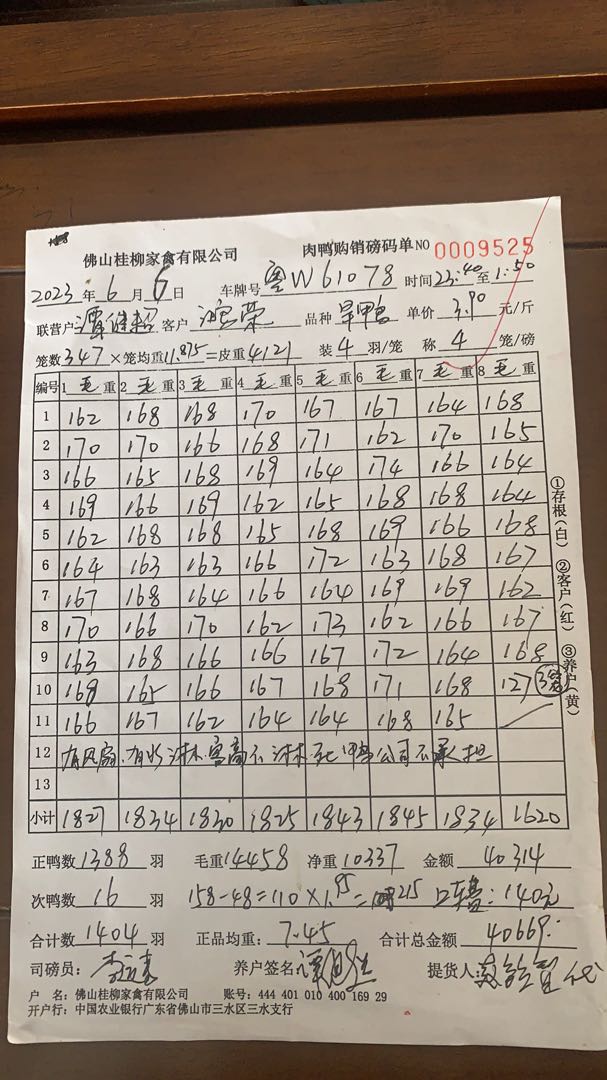 佛山桂柳家禽有限公司 肉鸭购销磅码单 NO 0009525
2023 年 6 月 6 日 车牌号 粤W61078 时间 23:40 至 1:50
联营户 谭继超 客户 鸿荣 品种 旱鸭 单价 3.90 元/斤
笼数 347 ×笼均重 11.875 =皮重 4121 装 4 羽/笼 称 4 笼/磅
编号 1 毛 重 2 毛 重 3 毛 重 4 毛 重 5 毛 重 6 毛 重 7 毛 重 8 毛 重
1 162 168 168 170 167 167 164 168
2 170 170 166 168 171 162 170 165
3 166 165 168 169 164 174 166 164
4 169 166 169 162 165 168 168 164
5 162 168 168 165 168 169 166 168
6 164 163 163 166 172 163 168 167
7 167 168 164 166 164 169 169 162
8 170 166 170 162 173 162 166 167
9 163 168 166 166 167 172 164 168
10 168 165 166 167 168 171 168 127 3笼
11 166 167 162 164 164 168 165
12 有风扇.有水淋.客商不淋.死鸭公司不承担
13
小计 1827 1834 1830 1825 1843 1845 1834 1620
正鸭数 1388 羽 毛重 14458 净重 10337 金额 40314
次鸭数 16 羽 158-48=110×1.95= 215 140元
合计数 1404 羽 正品均重: 7.45 合计总金额 40669
司磅员: 养户签名 提货人: 代
户 名: 佛山桂柳家禽有限公司 账号: 444 401 010 400 169 29
开户行: 中国农业银行广东省佛山市三水区三水支行
①存根(白) ②客户(红) ③养户(黄)